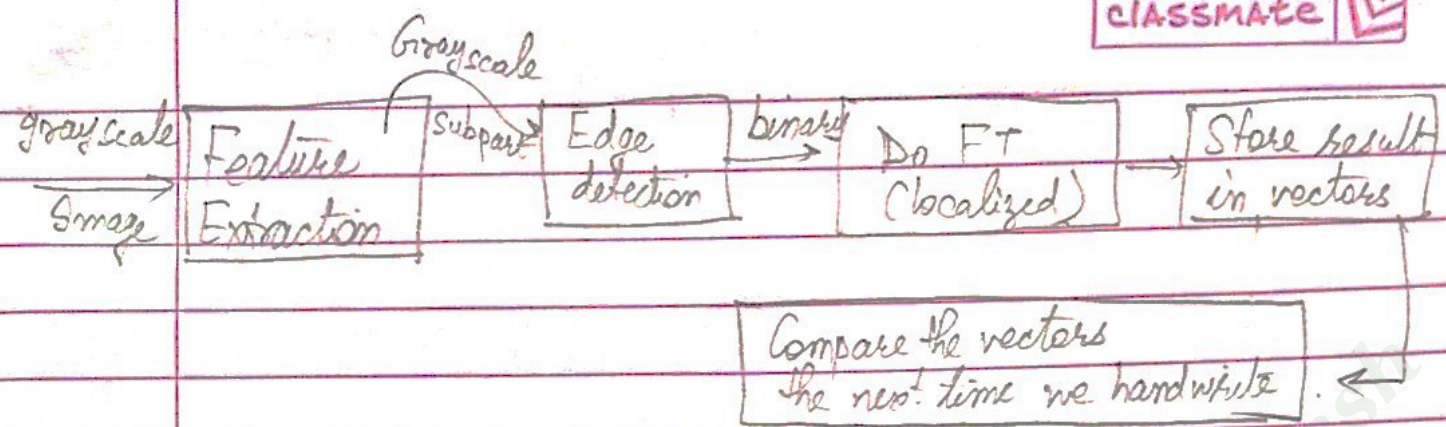 classmate
Grayscale
grayscale
Image
Feature
Extraction
Subpart
Edge
detection
binary
Do FT
(localized)
Store result
in vectors
Compare the vectors
the next time we handwrite.